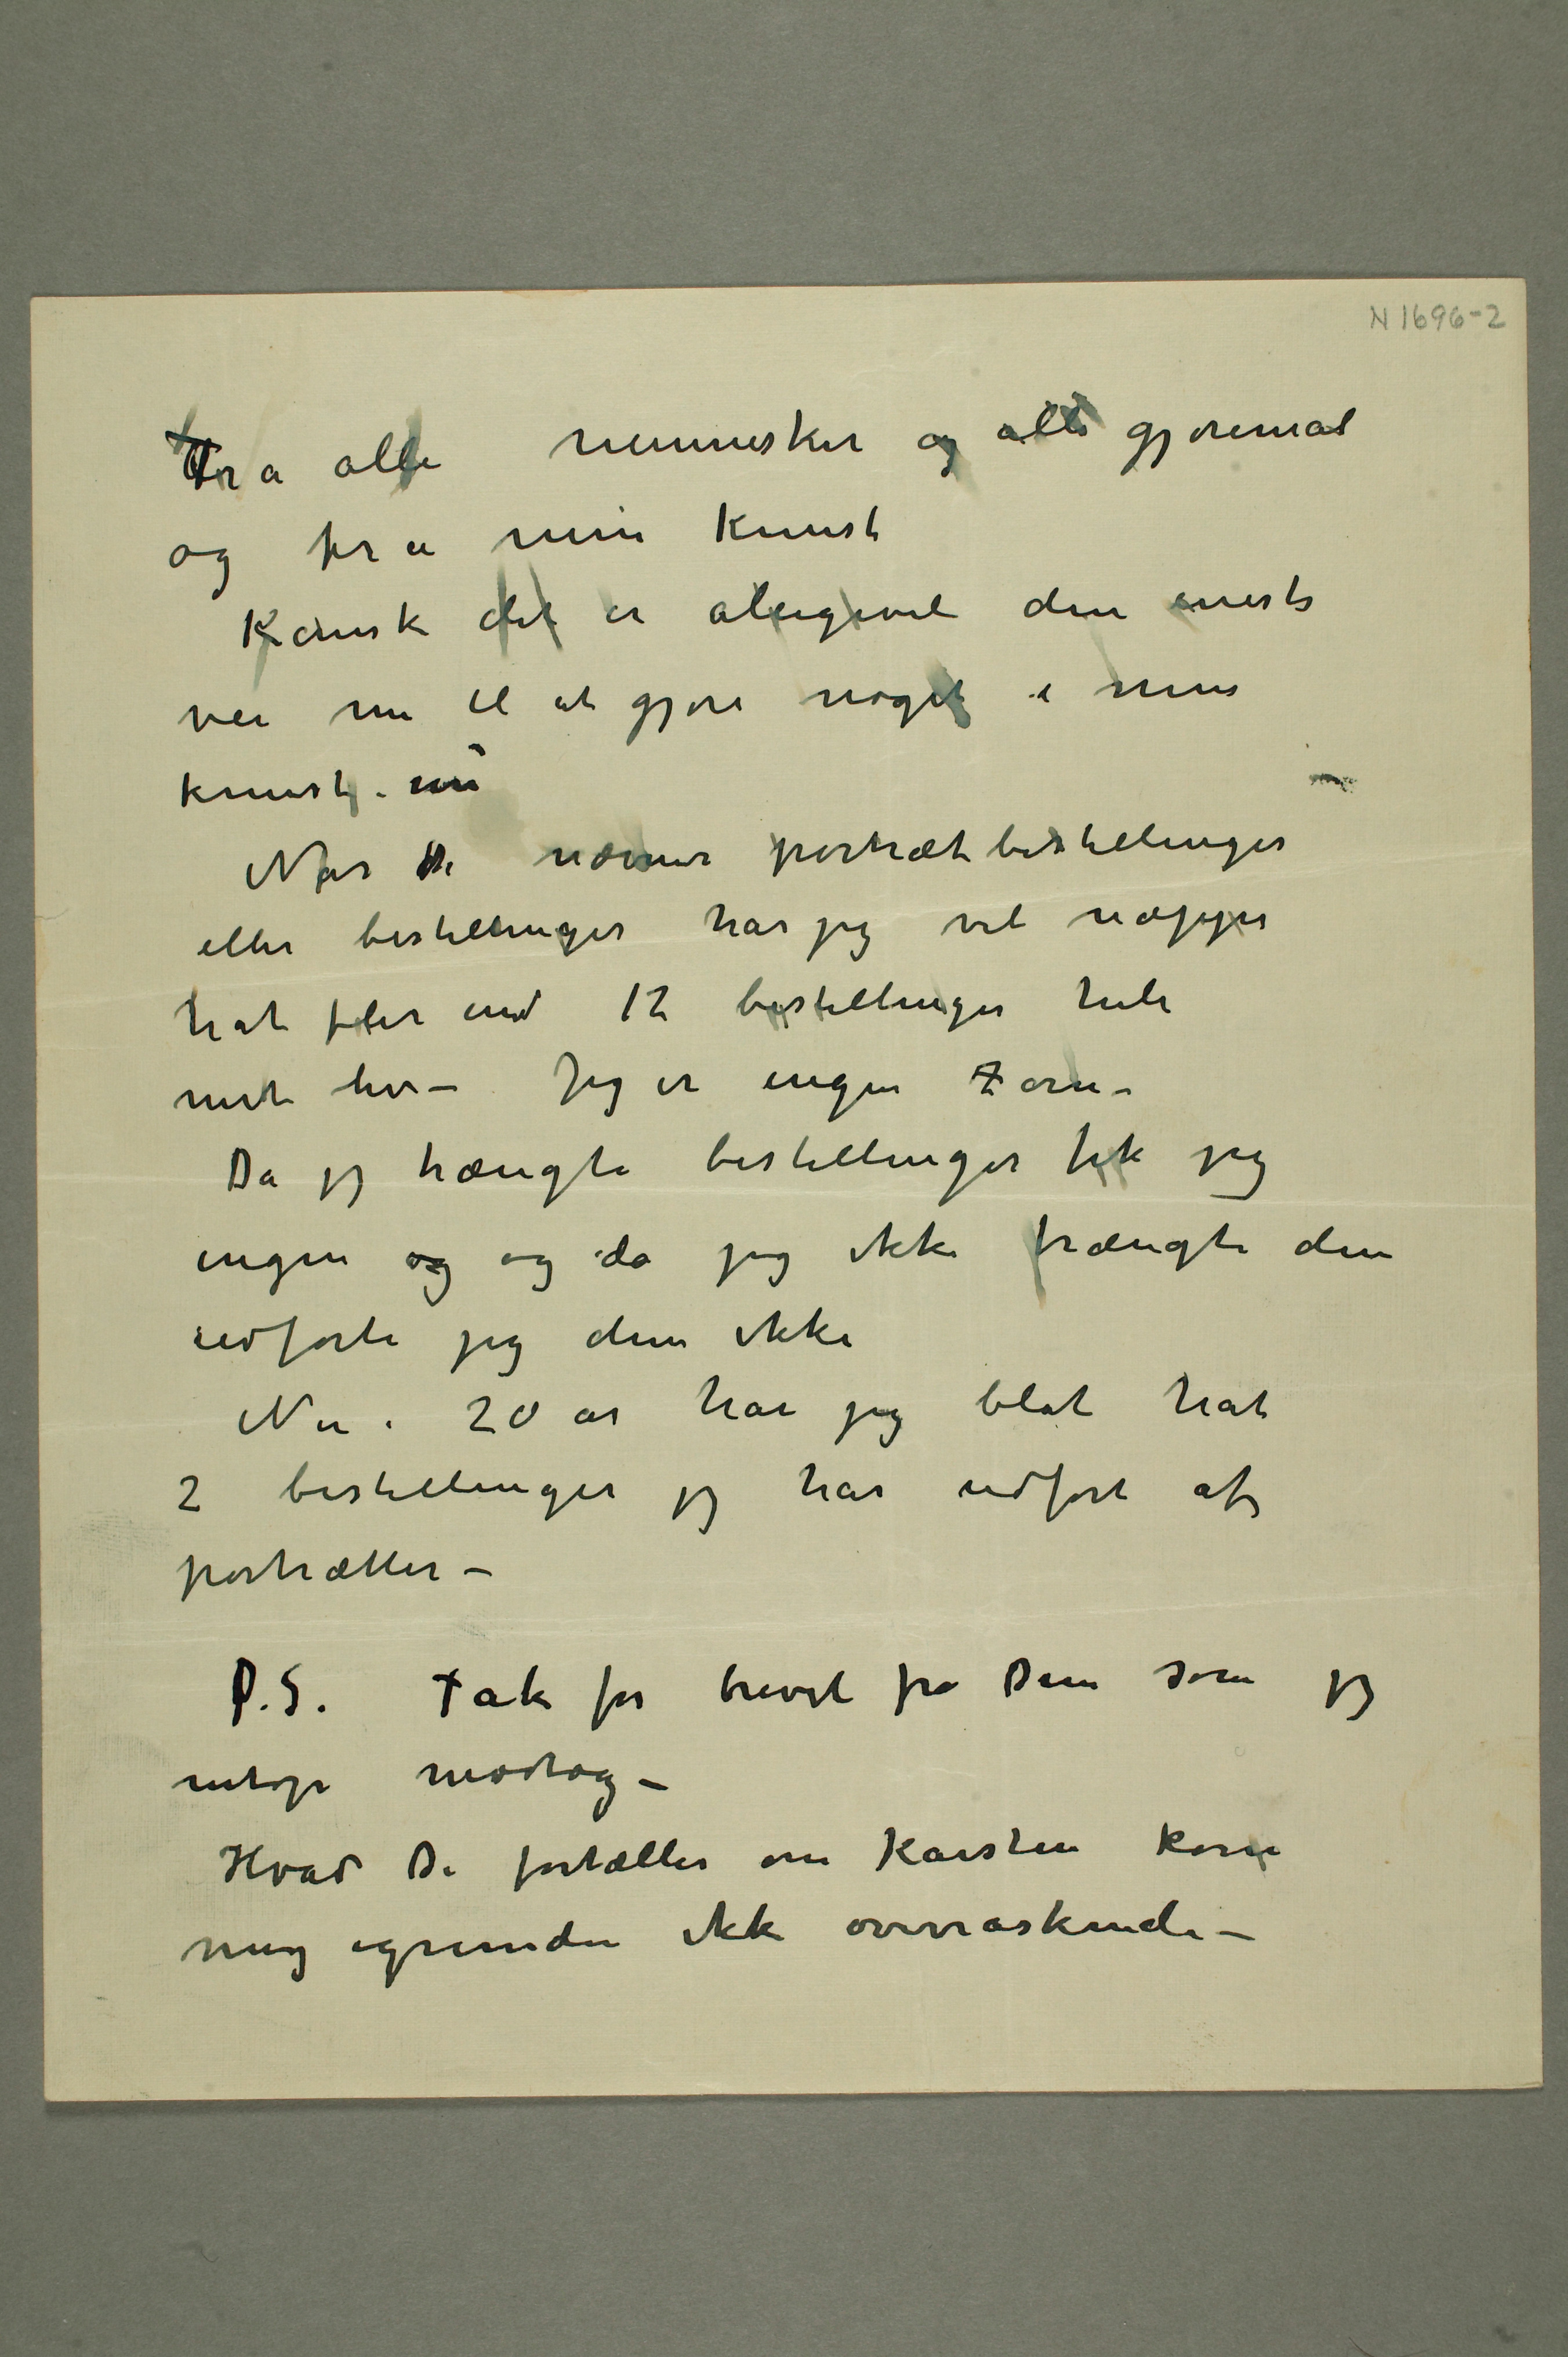 N 1696-2
Fra alle mennesker og alle gjøremål
og fra min kunst
Kanske det er alligevel den eneste
vei nu til at gjøre noget i min
kunst. nu
Når De nævner portrætbestillinger
eller bestillinger har jeg vel næppe
hat fler end 12 bestillinger hele
mit liv – Jeg er ingen Zorn –
Da jeg trængte bestillinger fik jeg
ingen og og da jeg ikke trængte dem
udførte jeg dem ikke
Nu i 20 år har jeg blot hat
2 bestillinger jeg har udført af
portrætter –
P.S. Tak for brevet fra Dem som jeg
netop modtog –
Hvad De fortæller om Karsten kom
mig igrunden ikke overraskende –